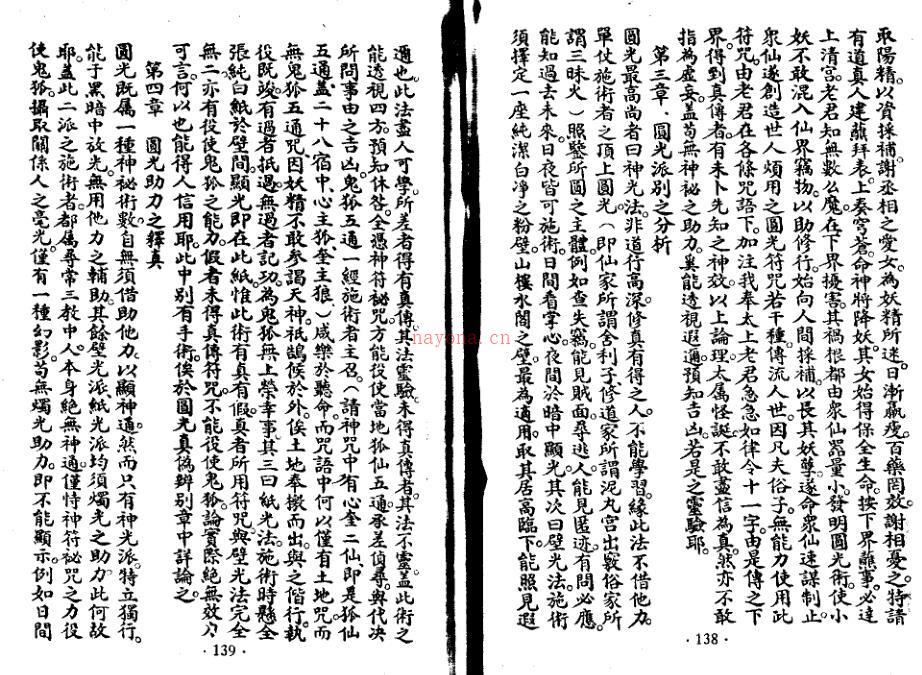 取陽精。以資採補。謝丞相之愛女。為妖精所迷。日漸羸瘦。百藥罔效。謝相憂之。特請
有道真人。建蘸拜表。上奏穹蒼。命神將降妖。其女始得保全生命。按下界蘸事。必達
上清宮。老君知無數么魔。在下界擾害。其禍根都由衆仙器量小。發明圓光術。使小
妖不敢混入仙界竊物。以助修行。始向人間採補。以長其妖孽。遂命衆仙速謀制止。
衆仙遂創造世人煩用之圓光符咒若干種。傳流人世。因凡夫俗子。無能力使用此
符咒。由老君在各條咒語下。加注我奉太上老君急急如律令十一字。由是傳之下
界。得到真傳者。有未卜先知之神效。以上論理。太屬怪誕。不敢盡信為真。然亦不敢
指為虛妄。蓋苟無神秘之助力。奚能透視遐邇。預知吉凶。若是之靈驗耶。
第三章　圓光派別之分析
圓光最高尚者曰神光法。非道行高深。修真有得之人。不能學習。緣此法不借他力。
單仗施術者之頂上圓光。（即仙家所謂舍利子。修道家所謂泥丸宮出竅。俗家所
謂三昧火）照鑒所圓之主體。例如查失竊。能見賊面。尋逃人。能見匿迹。有問必應。
能知過去未來。日夜皆可施術。日間看掌心。夜間於暗中顯光。其次曰壁光法。施術
須擇定一座純潔白净之粉壁。山樓水閣之壁。最為適用。取其居高臨下。能照見遐
·138·
邇也。此法盡人可學。所差者得有真傳。其法靈驗。未得真傳者。其法不靈。蓋此術之
能透視四方。預知休咎。全憑神符秘咒。方能役使當地狐仙五通。承差偵尋。與代決
所問事由之吉凶。鬼狐五通。一經施術者主召。（請神咒中有心奎二仙。即是狐仙
五通。蓋二十八宿中。心主狐。奎主狼。）咸樂於聽命。而咒語中何以僅有土地咒。而
無鬼狐五通咒。因妖精不敢參謁天神。祇鵠候於外。俟土地奉撤而出。與之偕行。執
役既竣。有過者抵過。無過者記功。為鬼狐無上榮幸事。其三曰紙光法。施術時懸全
張純白紙於壁間。顯光即在此紙。惟此術有真有假。真者所用符咒。與壁光法完全
無二。亦有役使鬼狐之能力。假者未得真傳。符咒不能役使鬼狐。論實際絕無效力
可言。何以也能得人信用耶。此中別有手術。俟於圓光真偽辨別章中詳論之。
第四章　圓光助力之釋真
圓光既屬一種神祕術數。自無須借助他力。以顯神通。然而只有神光派。特立獨行。
能于黑暗中放光。無用他力之輔助。其餘壁光派紙光派。均須燭光之助力。此何故
耶。蓋此二派之施術者。都屬尋常三教中人。本身絕無神通。僅恃神符秘咒之力。役
使鬼狐。攝取關係人之亮光。僅有一種幻影。苟無燭光助力。即不能顯示。例如日間
·139·
nayona.cn